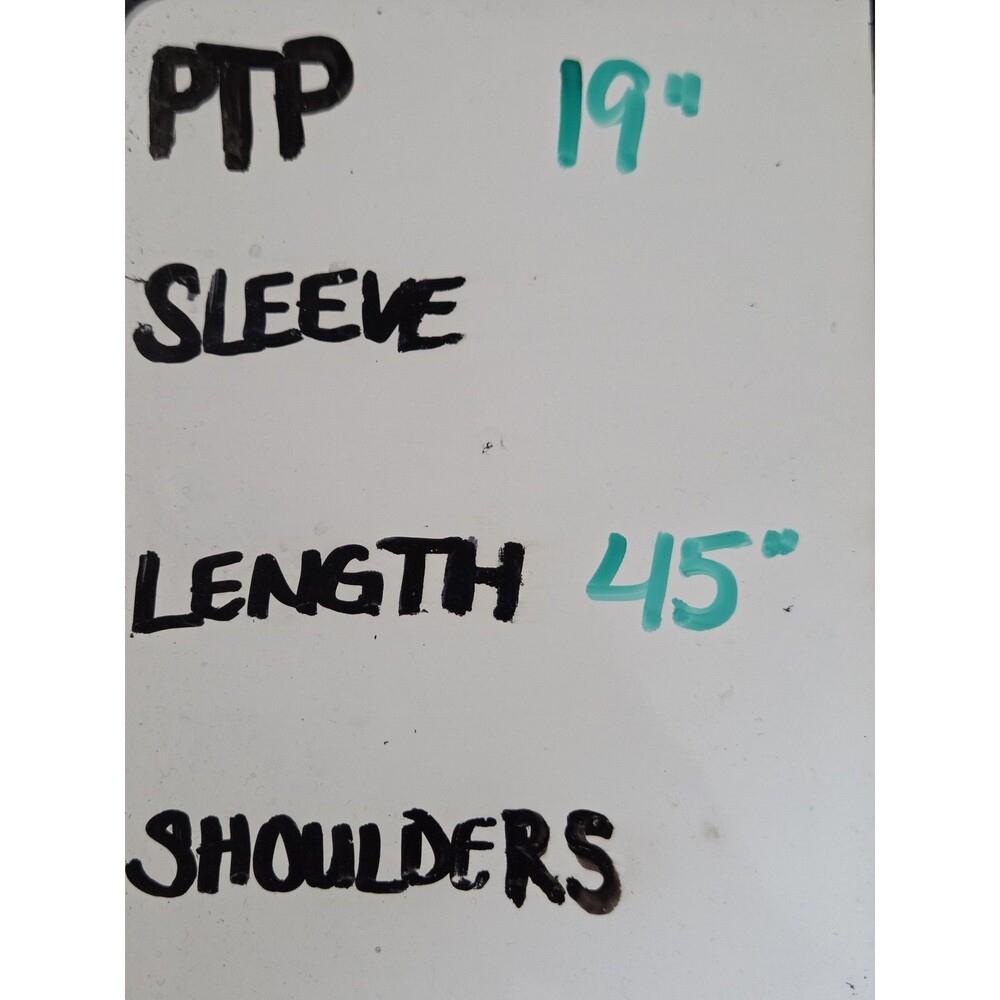 PTP 19"
SLEEVE
LENGTH 45"
SHOULDERS